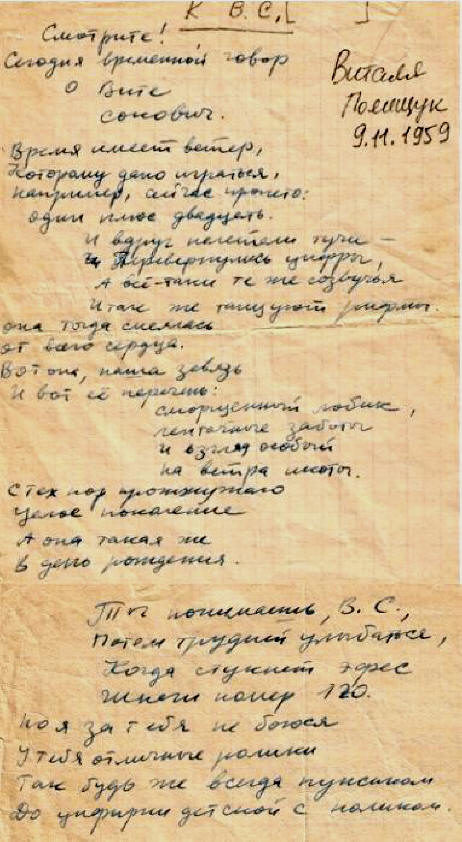 К В.С. [ ]
Смотрите!
Сегодня временной говор
О Вите
сонович.
Виталя
Полищук
9.11.1959
Время имеет ветер,
Которому дано играться,
Например, сейчас просто:
один плюс двадцать.
И вдруг налетели тучи –
Перевернулись цифры,
А всё-таки те же созвучья
И так же танцуют рифмы.
она тогда смеялась
от всего сердца.
Вот она, наша завязь
И вот её перечень:
сморщенный лобик,
ленточные заботы
и взгляд особый
на ветра
С тех пор
Целое поколение
А она такая же
В день рождения.
Ты понимаешь, В. С.,
Потом трудней улыбаться,
Когда стукнет эфес
Шпаги номер 120.
Но я за тебя не боюся
У тебя отличные ролики
Так будь же всегда пупсиком
До цифири детской с ноликом.